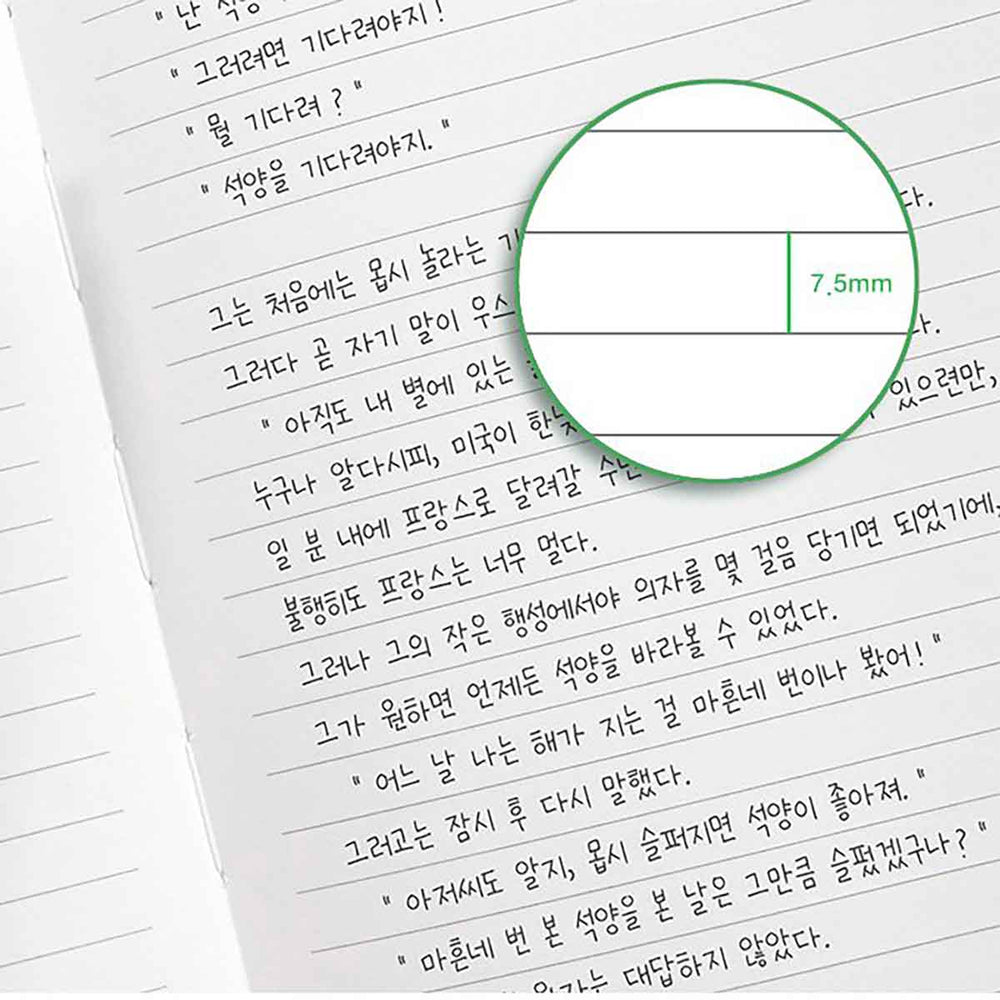 " 난 석양
" 그러려면 기다려야지 !
" 뭘 기다려 ? "
" 석양을 기다려야지. "
그는 처음에는 몹시 놀라는 기
다.
그러다 곧 자기 말이 우스
다.
" 아직도 내 별에 있는
누구나 알다시피, 미국이 한낮
있으련만,
일 분 내에 프랑스로 달려갈 수만
불행히도 프랑스는 너무 멀다.
그러나 그의 작은 행성에서야 의자를 몇 걸음 당기면 되었기에,
그가 원하면 언제든 석양을 바라볼 수 있었다.
" 어느 날 나는 해가 지는 걸 마흔네 번이나 봤어! "
그러고는 잠시 후 다시 말했다.
" 아저씨도 알지, 몹시 슬퍼지면 석양이 좋아져. "
" 마흔네 번 본 석양을 본 날은 그만큼 슬펐겠구나? "
대답하지 않았다.
7.5mm